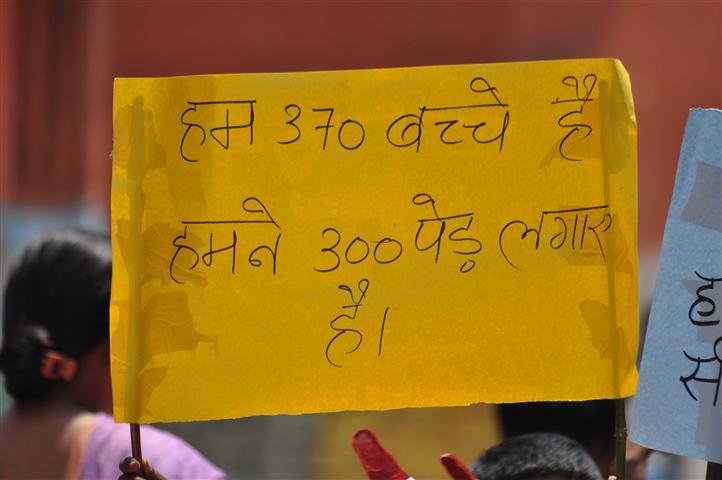 हम 370 बच्चे है
हमने 300 पेड़ लगाए
है।